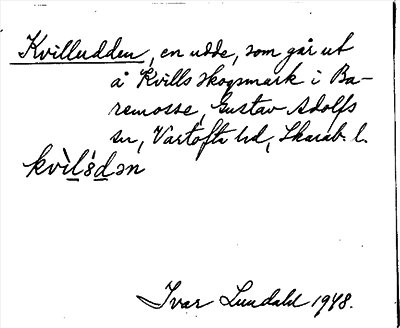 Kvilludden, en udde, som går ut
å Kvills skogsmark i Ba-
remosse, Gustav Adolfs
sn, Vartofta hd, Skarab. l.
kvìlsdən
Ivar Lundahl 1948.